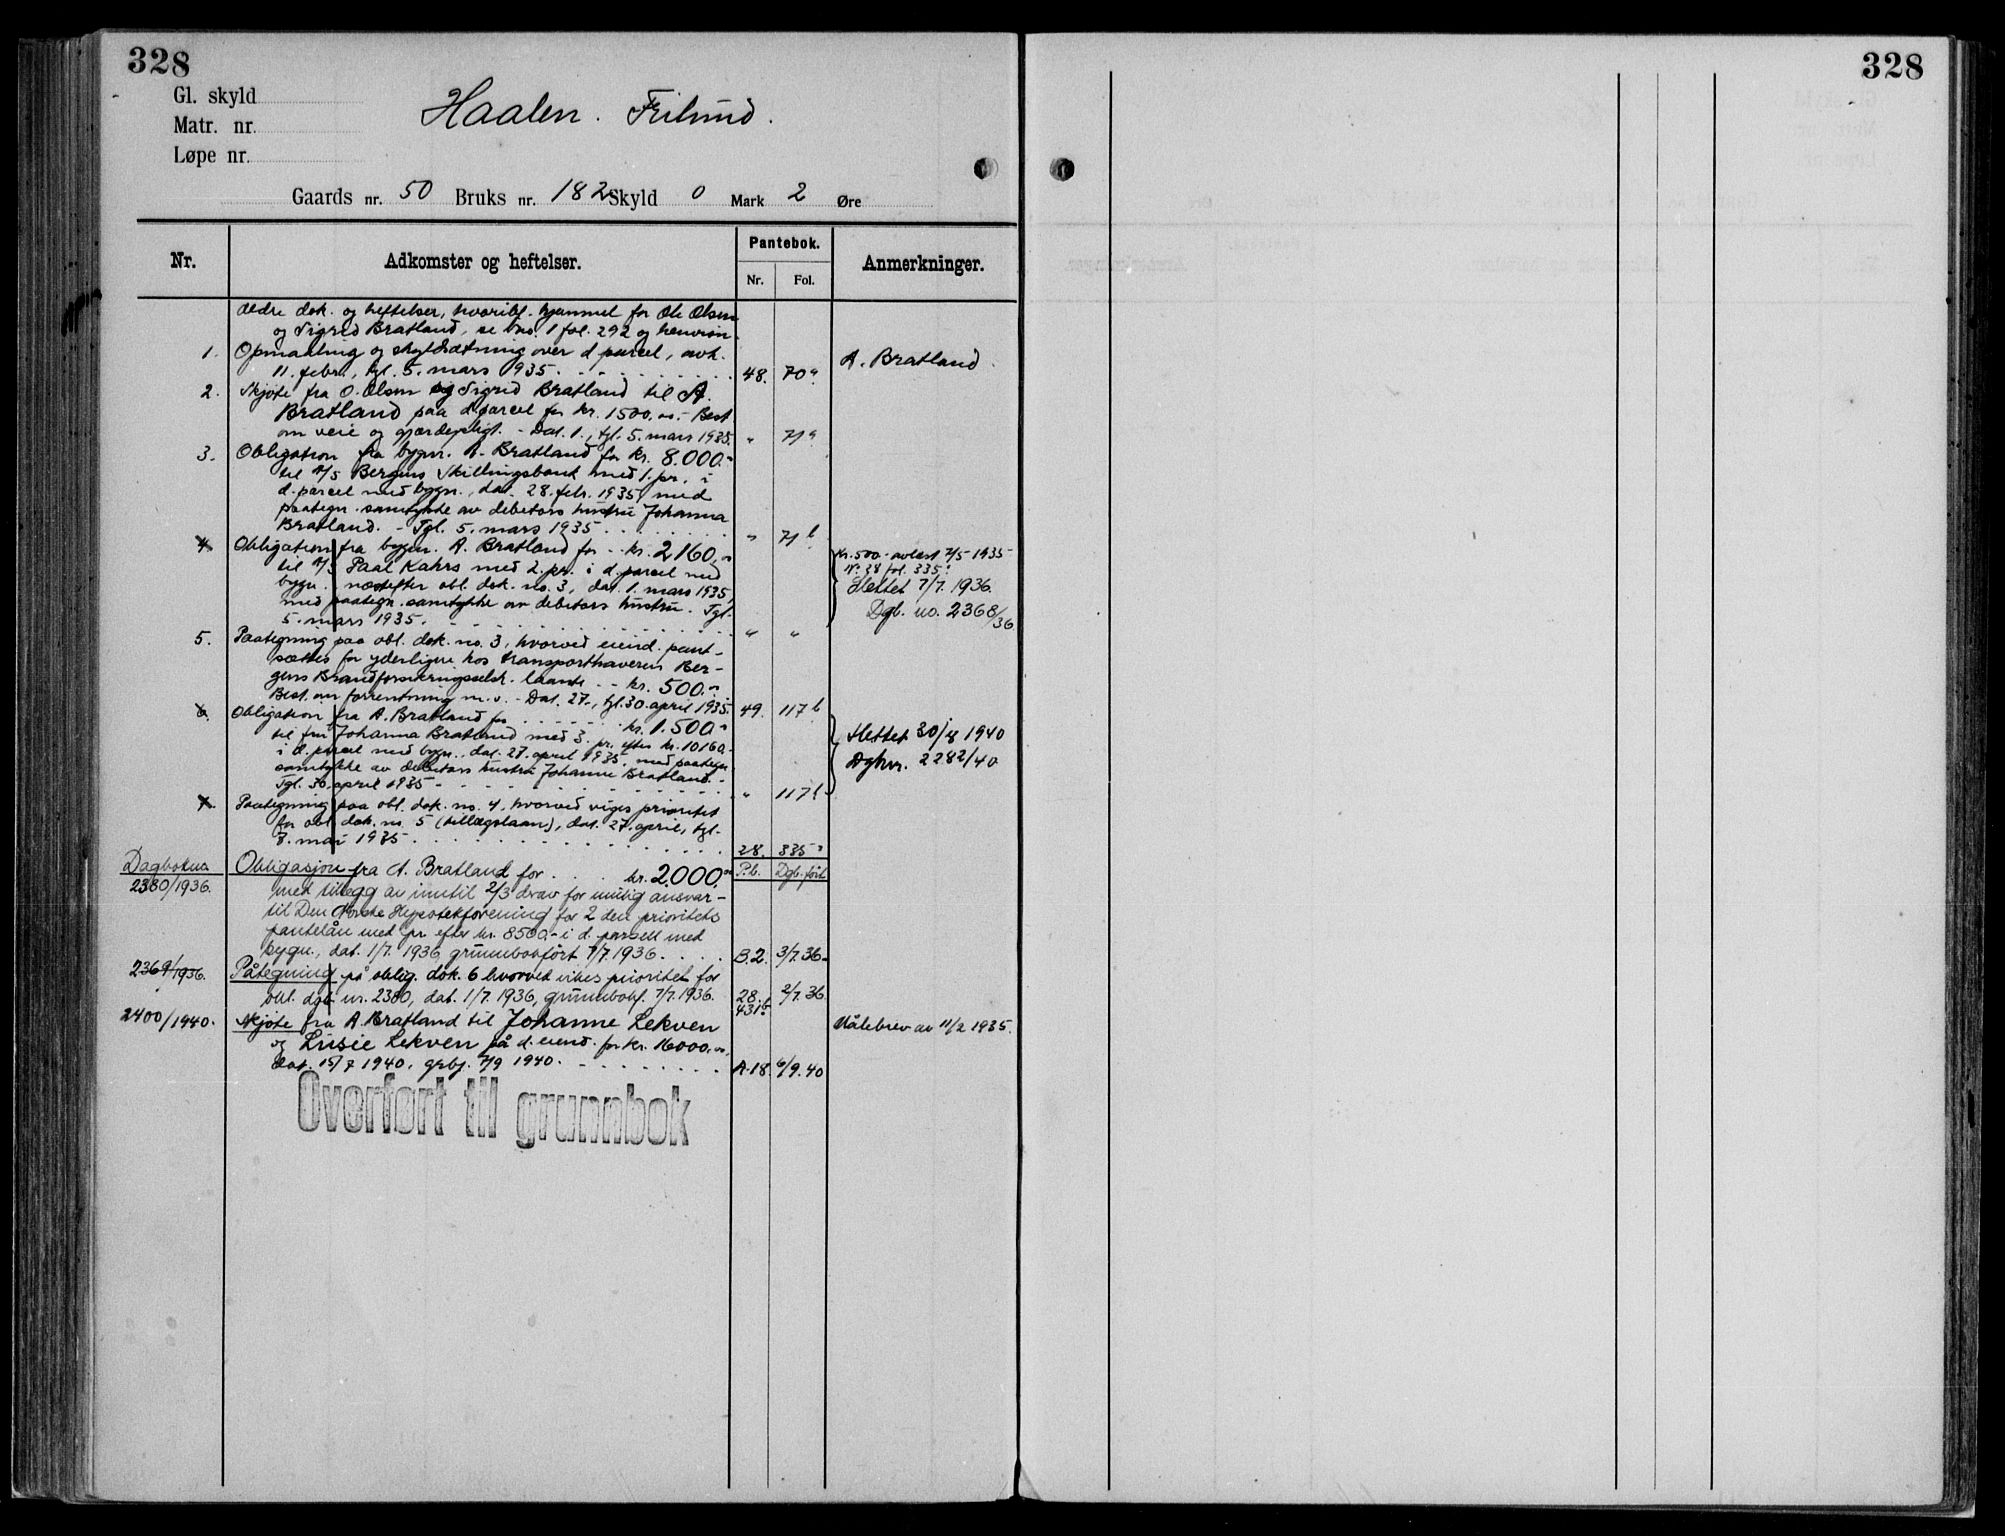 328
328
Gl. skyld
Haalen. Frilund.
Matr. nr.
Løpe nr.
Gaards nr. 50 Bruks nr. 182 Skyld 0 Mark 2 Øre
Nr. Adkomster og heftelser. Pantebok. Anmerkninger.
Nr. Fol.
Ældre dok. og heftelser, hvoribl. hjemmel for Ole Olsen
og Sigrid Bratland, se bno. 1 fol. 292 og henvisn.
1. Opmaaling og skyldsætning over d. parcel, avh.
11. febr., tgl. 5. mars 1935. 48. 70a A. Bratland.
2. Skjøte fra O. Olsen og Sigrid Bratland til A.
Bratland paa d. parcel for kr. 1500.00.- Best.
om veie og gjærdepligt. - Dat. 1., tgl. 5. mars 1935. " 71a
3. Obligation fra bygm. A. Bratland for kr. 8.000.-
til A/S Bergens Skillingsbank med 1. pr. i
d. parcel med bygn., dat. 28. febr. 1935, med
paategn. samtykke av debitors hustru Johanna
Bratland. - Tgl. 5. mars 1935 " 71b
4. Obligation fra bygm. A. Bratland for kr. 2160.00
til A/S Paal Kahrs med 2. pr. i d. parcel med
bygn. næstefter obl. dok. no. 3, dat. 1. mars 1935,
med paategn. samtykke av debitors hustru. Tgl.
5. mars 1935. " "
Kr. 500.- avløst 7/5-1935-
Nr. 28 fol. 335a
Slettet 7/7. 1936.
Dgb. no. 2368/36.
5. Paategning paa obl. dok. no. 3, hvorved eiend. pant-
sættes for yderligere hos transporthaveren Ber-
gens Brandforsikringsselsk. laante kr. 500.00
Best. om forrentning m.v. - Dat. 27., tgl. 30. april 1935. 49. 117b
6. Obligation fra A. Bratland for kr. 1.500.00
til fru Johanna Bratland med 3. pr. efter kr. 10160.-
i d. parcel med bygn., dat. 27. april 1935, med paategn.
samtykke av debitors hustru Johanne Bratland.-
Tgl. 30. april 1935 - " 117b
Slettet 30/8 1940
Dgbnr. 2282/40
7. Paategning paa obl. dok. no. 4, hvorved viges prioritet
for obl. dok. no. 5 (tillægslaan), dat. 27. april, tgl.
7. mai 1935. 28. 335a
Dagboknr. Obligasjon fra A. Bratland for kr. 2.000.00 P.b. Dgb. ført
2380/1936. med tillegg av inntil 2/3 derav for mulig ansvar-
til Den Norske Hypotekforening for 2 den prioritets
pantelån med pr. efter kr. 8500.- i d. parsell med
bygn., dat. 1/7. 1936, grunnbokført 7/7. 1936. B.2. 3/7. 36.
2369/1936. Påtegning på oblig. dok. 6 hvorved vikes prioritet for
obl. dgb. nr. 2380, dat. 1/7. 1936, grunnbokf. 7/7. 1936. 28. 431b 2/7. 36
2400/1940. Skjøte fra A. Bratland til Johanne Lekven
og Lusie Lekven på d. eiend. for kr. 16000.00,
dat. 15/7 1940, grbf. 7/9 1940. A.18. 6/9. 40
Målebrev av 11/2 1935.
Overført til grunnbok